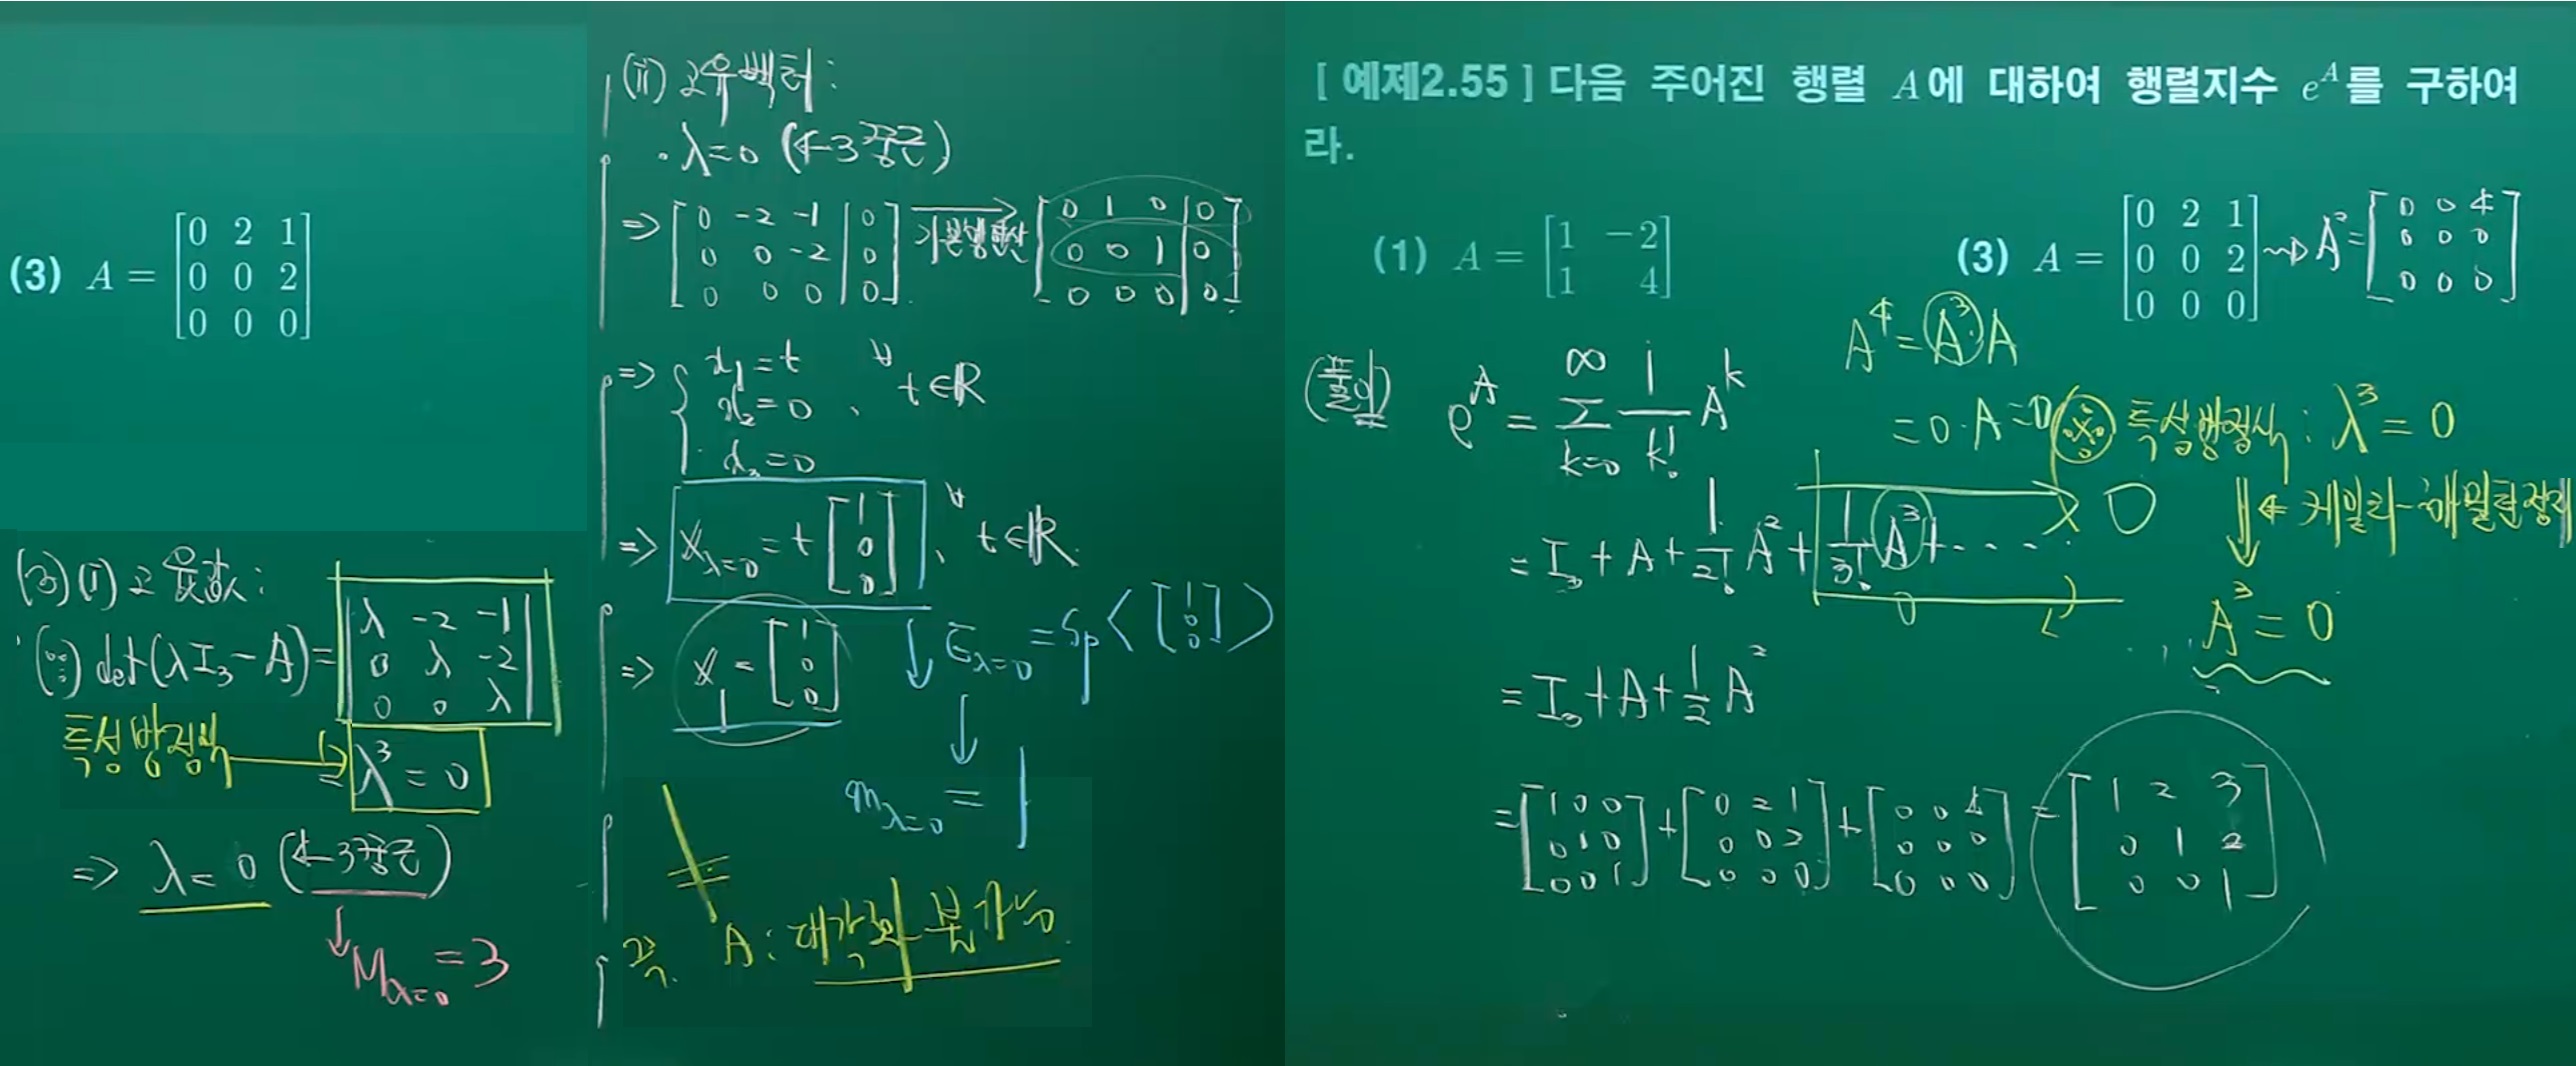 (3) A = [0 2 1; 0 0 2; 0 0 0]
(3) (i) 고윳값:
(∵) det(λI₃-A) = |λ -2 -1; 0 λ -2; 0 0 λ|
특성방정식 → = λ³ = 0
⇒ λ = 0 (←3중근)
↓ Mλ=0 = 3
(ii) 고유벡터:
· λ=0 (←3중근)
⇒ [0 -2 -1 | 0; 0 0 -2 | 0; 0 0 0 | 0] 기본행연산 → [0 1 0 | 0; 0 0 1 | 0; 0 0 0 | 0]
⇒ { x₁=t, x₂=0, x₃=0 , ∀t∈ℝ
⇒ xλ=0 = t [1; 0; 0], ∀t∈ℝ.
⇒ x₁ = [1; 0; 0] ↓ Eλ=0 = Sp< [1; 0; 0] >
↓
mλ=0 = 1
≠
즉. A: 대각화 불가능.
[ 예제2.55 ] 다음 주어진 행렬 A에 대하여 행렬지수 e^A를 구하여
라.
(1) A = [1 -2; 1 4]
(3) A = [0 2 1; 0 0 2; 0 0 0] ⇝ A² = [0 0 4; 0 0 0; 0 0 0]
A⁴ = A³·A
= 0·A = 0
(풀이) e^A = Σ_{k=0}^{∞} 1/k! A^k
(∵) 특성방정식: λ³ = 0
⇓ ← 케일리-해밀턴정리
A³ = 0
= I₃ + A + 1/2! A² + 1/3! A³ + ···· → 0
0
= I₃ + A + 1/2 A²
= [1 0 0; 0 1 0; 0 0 1] + [0 2 1; 0 0 2; 0 0 0] + [0 0 4; 0 0 0; 0 0 0] = [1 2 3; 0 1 2; 0 0 1]